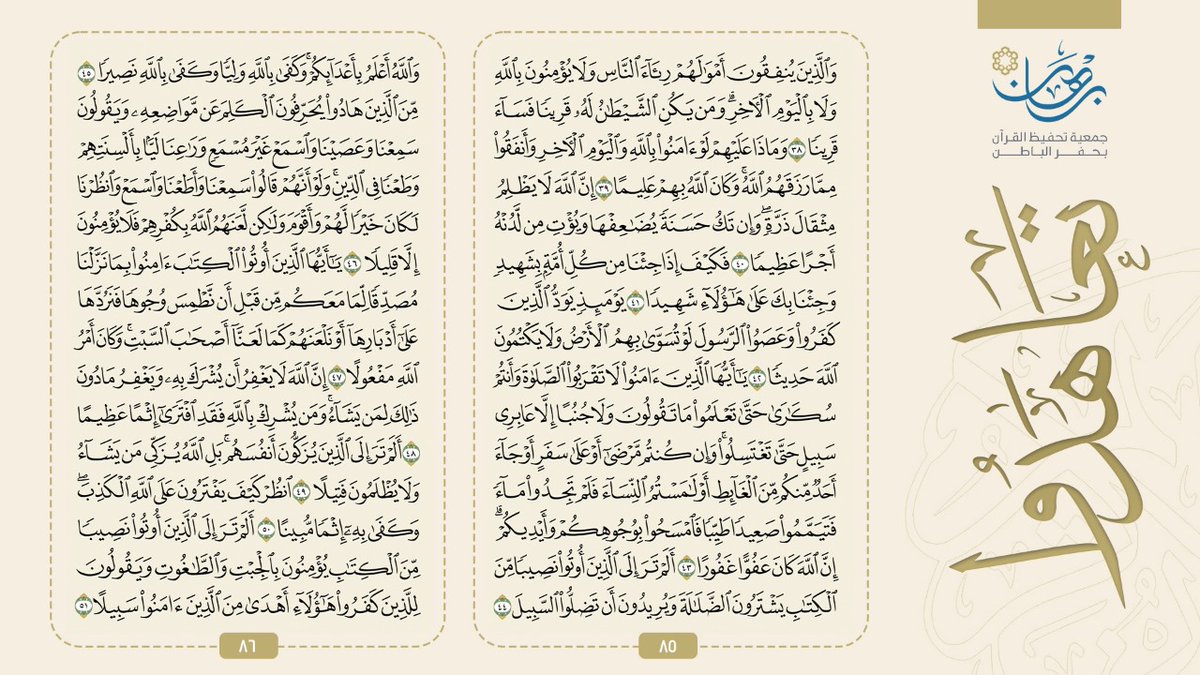 برهان
جمعية تحفيظ القرآن
بحفر الباطن
تعاهدوا
وَالَّذِينَ يُنفِقُونَ أَمْوَٰلَهُمْ رِئَآءَ ٱلنَّاسِ وَلَا يُؤْمِنُونَ بِٱللَّهِ
وَلَا بِٱلْيَوْمِ ٱلْـَٔاخِرِ ۗ وَمَن يَكُنِ ٱلشَّيْطَٰنُ لَهُۥ قَرِينًا فَسَآءَ
قَرِينًا ٣٨ وَمَاذَا عَلَيْهِمْ لَوْ ءَامَنُوا۟ بِٱللَّهِ وَٱلْيَوْمِ ٱلْـَٔاخِرِ وَأَنفَقُوا۟
مِمَّا رَزَقَهُمُ ٱللَّهُ ۚ وَكَانَ ٱللَّهُ بِهِمْ عَلِيمًا ٣٩ إِنَّ ٱللَّهَ لَا يَظْلِمُ
مِثْقَالَ ذَرَّةٍ ۖ وَإِن تَكُ حَسَنَةً يُضَٰعِفْهَا وَيُؤْتِ مِن لَّدُنْهُ
أَجْرًا عَظِيمًا ٤٠ فَكَيْفَ إِذَا جِئْنَا مِن كُلِّ أُمَّةٍۭ بِشَهِيدٍ
وَجِئْنَا بِكَ عَلَىٰ هَٰٓؤُلَآءِ شَهِيدًا ٤١ يَوْمَئِذٍ يَوَدُّ ٱلَّذِينَ
كَفَرُوا۟ وَعَصَوُا۟ ٱلرَّسُولَ لَوْ تُسَوَّىٰ بِهِمُ ٱلْأَرْضُ وَلَا يَكْتُمُونَ
ٱللَّهَ حَدِيثًا ٤٢ يَٰٓأَيُّهَا ٱلَّذِينَ ءَامَنُوا۟ لَا تَقْرَبُوا۟ ٱلصَّلَوٰةَ وَأَنتُمْ
سُكَٰرَىٰ حَتَّىٰ تَعْلَمُوا۟ مَا تَقُولُونَ وَلَا جُنُبًا إِلَّا عَابِرِى
سَبِيلٍ حَتَّىٰ تَغْتَسِلُوا۟ ۚ وَإِن كُنتُم مَّرْضَىٰٓ أَوْ عَلَىٰ سَفَرٍ أَوْ جَآءَ
أَحَدٌ مِّنكُم مِّنَ ٱلْغَآئِطِ أَوْ لَٰمَسْتُمُ ٱلنِّسَآءَ فَلَمْ تَجِدُوا۟ مَآءً
فَتَيَمَّمُوا۟ صَعِيدًا طَيِّبًا فَٱمْسَحُوا۟ بِوُجُوهِكُمْ وَأَيْدِيكُمْ ۗ
إِنَّ ٱللَّهَ كَانَ عَفُوًّا غَفُورًا ٤٣ أَلَمْ تَرَ إِلَى ٱلَّذِينَ أُوتُوا۟ نَصِيبًا مِّنَ
ٱلْكِتَٰبِ يَشْتَرُونَ ٱلضَّلَٰلَةَ وَيُرِيدُونَ أَن تَضِلُّوا۟ ٱلسَّبِيلَ ٤٤
٨٥
وَٱللَّهُ أَعْلَمُ بِأَعْدَآئِكُمْ ۚ وَكَفَىٰ بِٱللَّهِ وَلِيًّا وَكَفَىٰ بِٱللَّهِ نَصِيرًا ٤٥
مِّنَ ٱلَّذِينَ هَادُوا۟ يُحَرِّفُونَ ٱلْكَلِمَ عَن مَّوَاضِعِهِۦ وَيَقُولُونَ
سَمِعْنَا وَعَصَيْنَا وَٱسْمَعْ غَيْرَ مُسْمَعٍ وَرَٰعِنَا لَيًّۢا بِأَلْسِنَتِهِمْ
وَطَعْنًا فِى ٱلدِّينِ ۚ وَلَوْ أَنَّهُمْ قَالُوا۟ سَمِعْنَا وَأَطَعْنَا وَٱسْمَعْ وَٱنظُرْنَا
لَكَانَ خَيْرًا لَّهُمْ وَأَقْوَمَ وَلَٰكِن لَّعَنَهُمُ ٱللَّهُ بِكُفْرِهِمْ فَلَا يُؤْمِنُونَ
إِلَّا قَلِيلًا ٤٦ يَٰٓأَيُّهَا ٱلَّذِينَ أُوتُوا۟ ٱلْكِتَٰبَ ءَامِنُوا۟ بِمَا نَزَّلْنَا
مُصَدِّقًا لِّمَا مَعَكُم مِّن قَبْلِ أَن نَّطْمِسَ وُجُوهًا فَنَرُدَّهَا
عَلَىٰٓ أَدْبَارِهَآ أَوْ نَلْعَنَهُمْ كَمَا لَعَنَّآ أَصْحَٰبَ ٱلسَّبْتِ ۚ وَكَانَ أَمْرُ
ٱللَّهِ مَفْعُولًا ٤٧ إِنَّ ٱللَّهَ لَا يَغْفِرُ أَن يُشْرَكَ بِهِۦ وَيَغْفِرُ مَا دُونَ
ذَٰلِكَ لِمَن يَشَآءُ ۚ وَمَن يُشْرِكْ بِٱللَّهِ فَقَدِ ٱفْتَرَىٰٓ إِثْمًا عَظِيمًا
٤٨ أَلَمْ تَرَ إِلَى ٱلَّذِينَ يُزَكُّونَ أَنفُسَهُم ۚ بَلِ ٱللَّهُ يُزَكِّى مَن يَشَآءُ
وَلَا يُظْلَمُونَ فَتِيلًا ٤٩ ٱنظُرْ كَيْفَ يَفْتَرُونَ عَلَى ٱللَّهِ ٱلْكَذِبَ ۖ
وَكَفَىٰ بِهِۦٓ إِثْمًا مُّبِينًا ٥٠ أَلَمْ تَرَ إِلَى ٱلَّذِينَ أُوتُوا۟ نَصِيبًا
مِّنَ ٱلْكِتَٰبِ يُؤْمِنُونَ بِٱلْجِبْتِ وَٱلطَّٰغُوتِ وَيَقُولُونَ
لِلَّذِينَ كَفَرُوا۟ هَٰٓؤُلَآءِ أَهْدَىٰ مِنَ ٱلَّذِينَ ءَامَنُوا۟ سَبِيلًا ٥١
٨٦